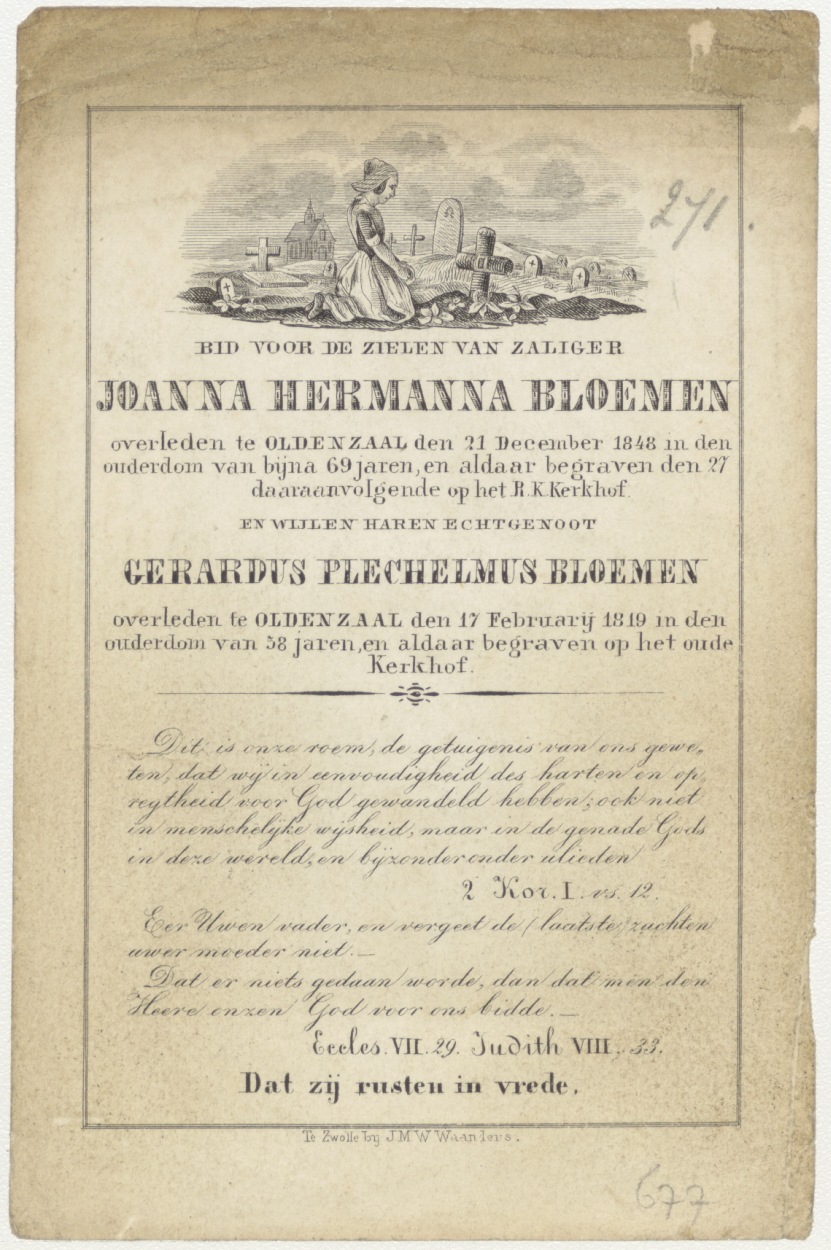 271.
BID VOOR DE ZIELEN VAN ZALIGER
JOANNA HERMANNA BLOEMEN
overleden te OLDENZAAL den 21 December 1848 in den
ouderdom van bijna 69 jaren, en aldaar begraven den 27
daaraanvolgende op het R.K. Kerkhof.
EN WIJLEN HAREN ECHTGENOOT
GERARDUS PLECHELMUS BLOEMEN
overleden te OLDENZAAL den 17 Februarij 1819 in den
ouderdom van 38 jaren, en aldaar begraven op het oude
Kerkhof.
Dit is onze roem, de getuigenis van ons gewe„
ten, dat wij in eenvoudigheid des harten en op„
regtheid voor God gewandeld hebben; ook niet
in menschelijke wijsheid, maar in de genade Gods
in deze wereld, en bijzonder onder ulieden
2 Kor. I. vs. 12.
Eer Uwen vader, en vergeet de (laatste) zuchten
uwer moeder niet.—
Dat er niets gedaan worde, dan dat men den
Heere onzen God voor ons bidde.—
Eccles. VII. 29. Judith VIII. 33.
Dat zij rusten in vrede.
Te Zwolle bij J M W Waanders.
677